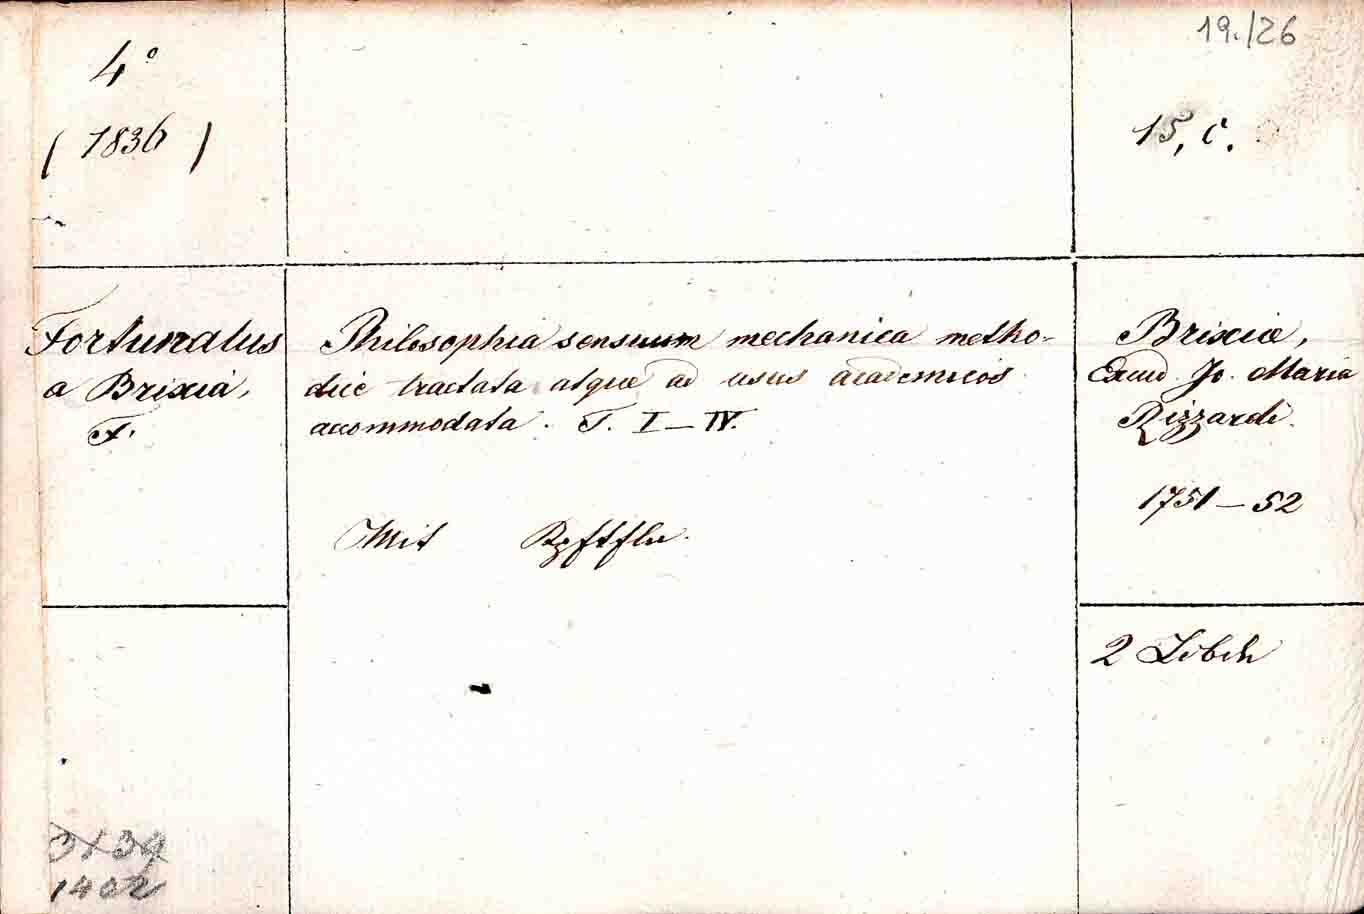 4°
(1836)
19./26
15, C.
Fortunatus
a Brixia,
F.
Philosophia sensuum mechanica metho-
dice tractata atque ad usus academicos
accommodata. T. I–IV.
Mit Kpftfln.
Brixiæ,
Excud. Jo. Maria
Rizzardi.
1751–52
2 Lebde
1402